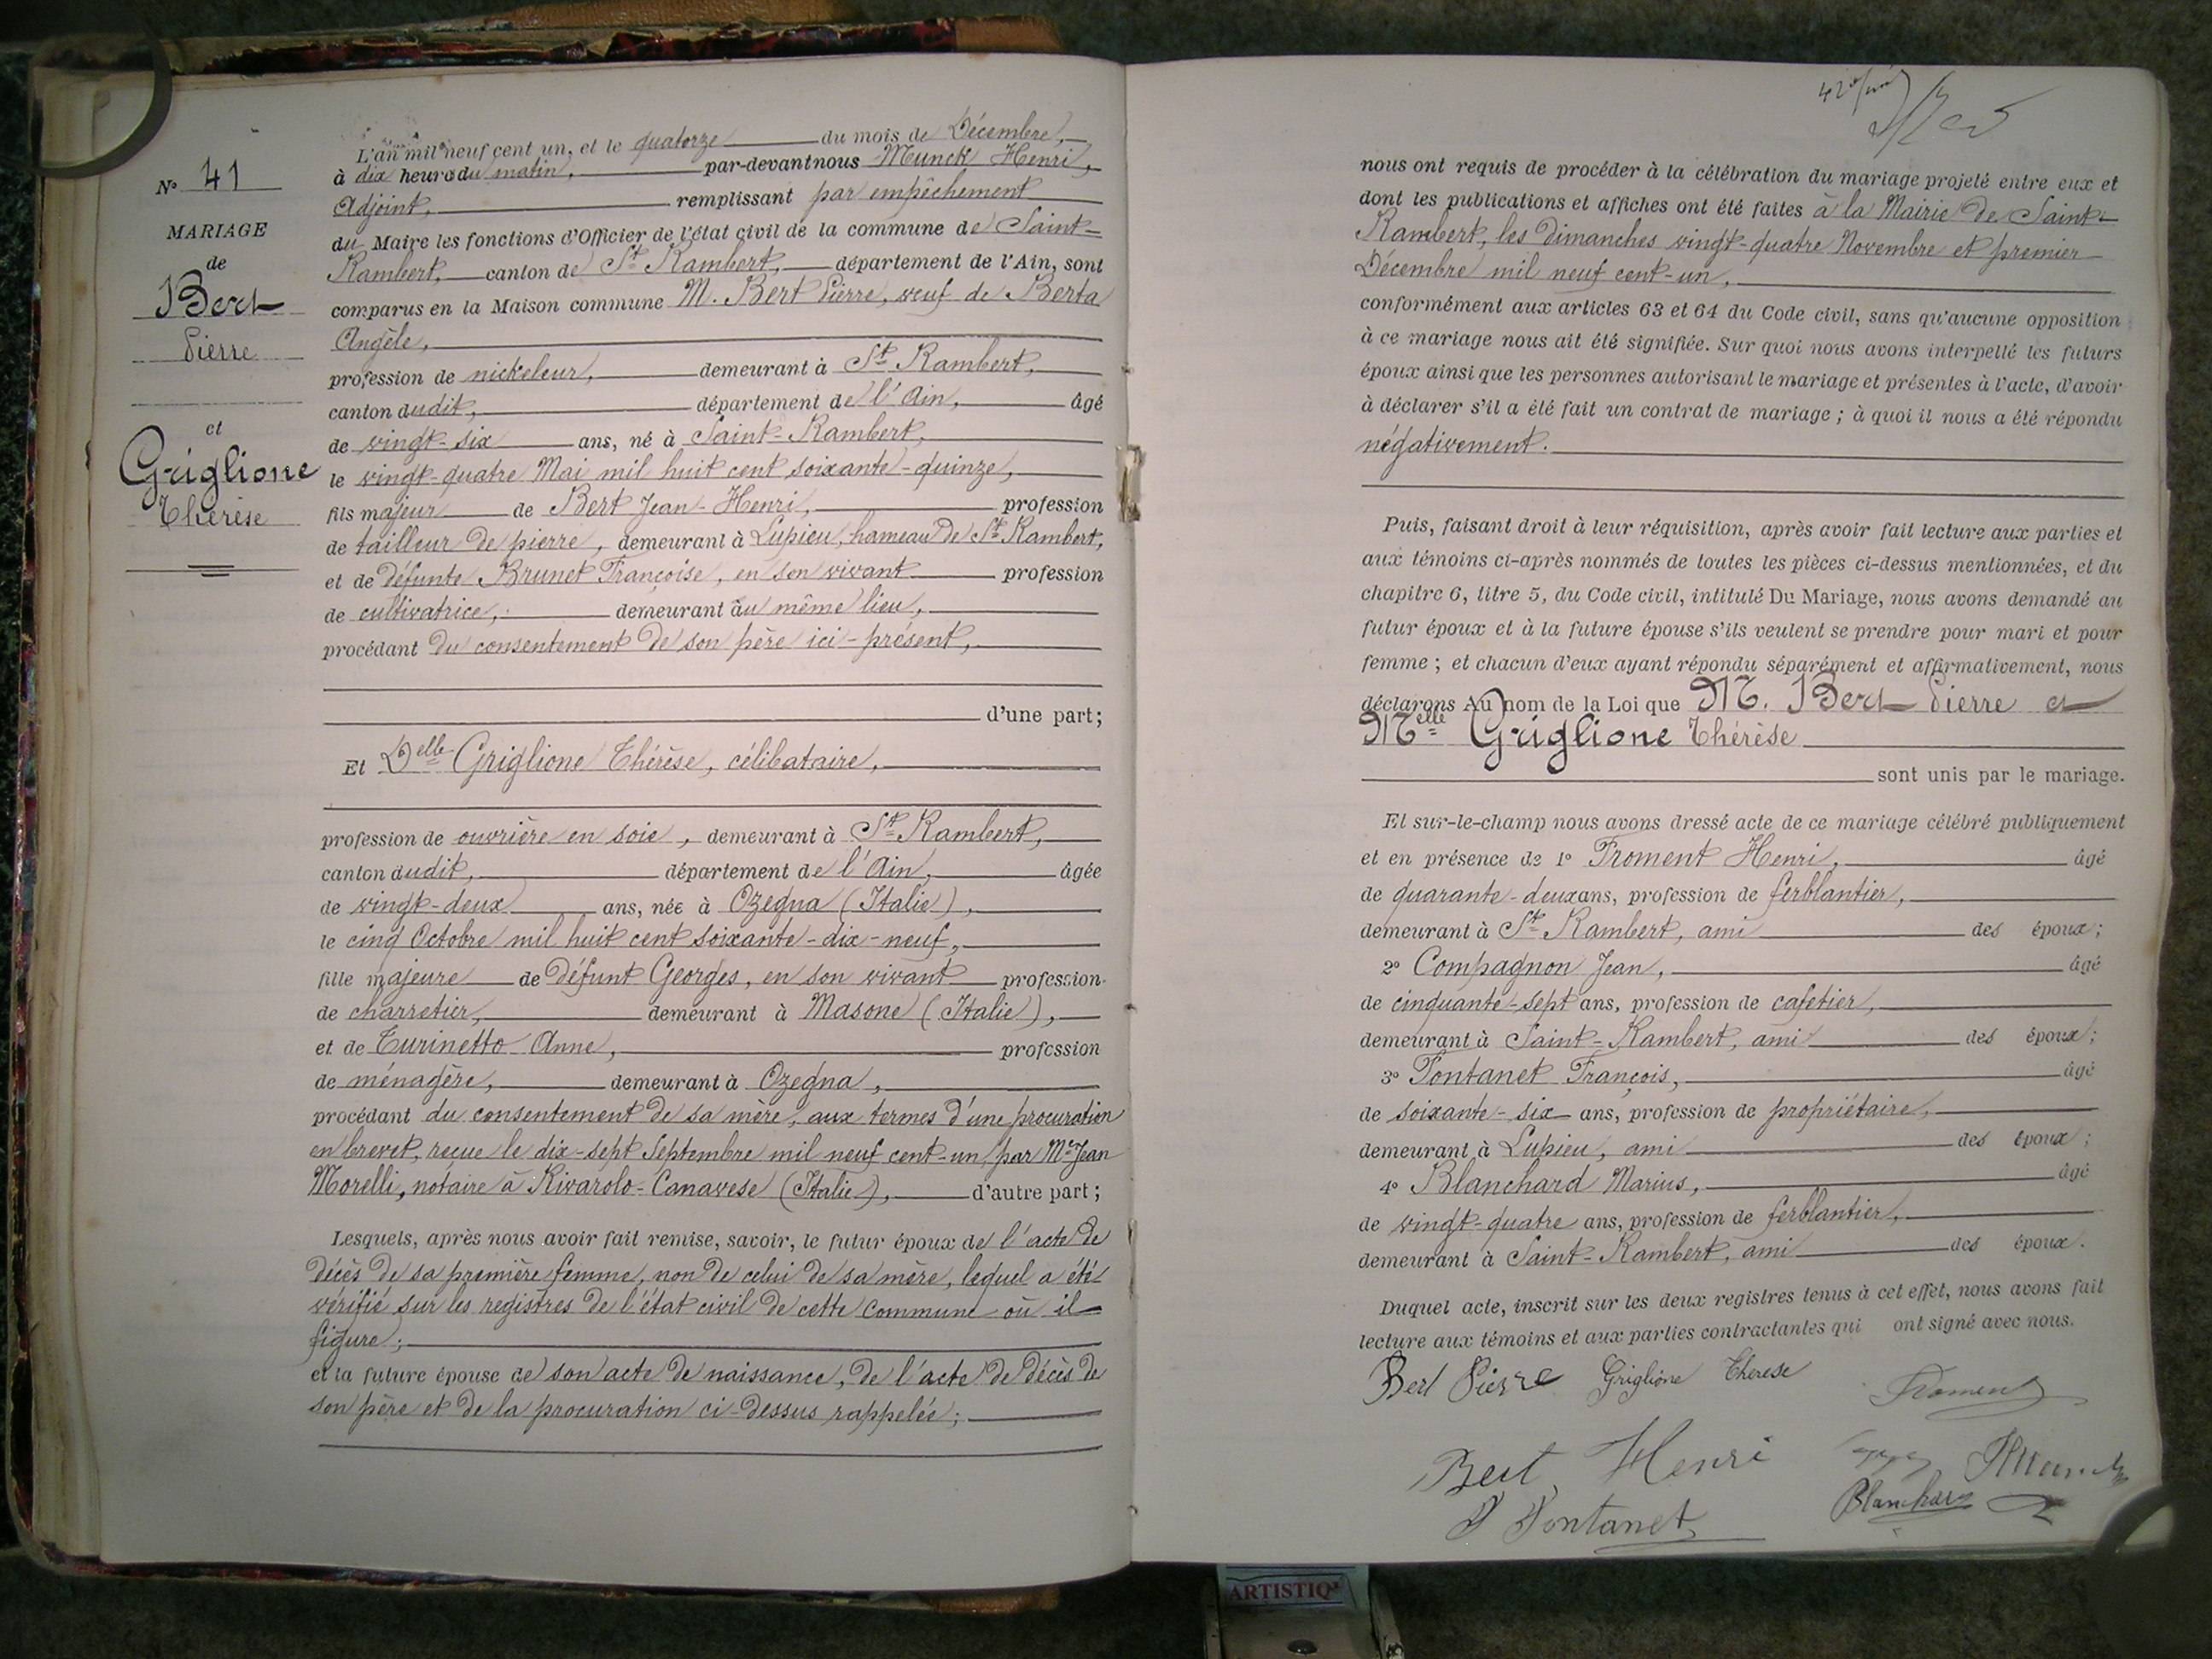 N° 41
MARIAGE
de
Bert
Pierre
et
Griglione
Thérèse
L'an mil neuf cent un, et le quatorze du mois de Décembre,
à dix heures du matin, par-devant nous Munck Henri,
Adjoint, remplissant par empêchement
du Maire les fonctions d'Officier de l'état civil de la commune de Saint-
Rambert, canton de St Rambert, département de l'Ain, sont
comparus en la Maison commune M. Bert Pierre, veuf de Berta
Angèle,
profession de nickeleur, demeurant à St Rambert,
canton dudit, département de l'Ain, âgé
de vingt-six ans, né à Saint-Rambert,
le vingt-quatre Mai mil huit cent soixante-quinze,
fils majeur de Bert Jean-Henri, profession
de tailleur de pierre, demeurant à Lupieu, hameau de St Rambert,
et de défunte Brunet Françoise, en son vivant profession
de cultivatrice, demeurant au même lieu,
procédant du consentement de son père ici-présent,
d'une part;
Et Delle Griglione Thérèse, célibataire,
profession de ouvrière en soie, demeurant à St Rambert,
canton dudit, département de l'Ain, âgée
de vingt-deux ans, née à Ozegna (Italie),
le cinq Octobre mil huit cent soixante-dix-neuf,
fille majeure de défunt Georges, en son vivant profession
de charretier, demeurant à Masone (Italie),
et de Turinetto Anne, profession
de ménagère, demeurant à Ozegna,
procédant du consentement de sa mère, aux termes d'une procuration
en brevet, reçue le dix-sept Septembre mil neuf cent-un, par Me Jean
Morelli, notaire à Rivarolo-Canavese (Italie), d'autre part;
Lesquels, après nous avoir fait remise, savoir, le futur époux de l'acte de
décès de sa première femme, non de celui de sa mère, lequel a été
vérifié sur les registres de l'état civil de cette commune où il
figure;
et la future épouse de son acte de naissance, de l'acte de décès de
son père et de la procuration ci-dessus rappelée;
nous ont requis de procéder à la célébration du mariage projeté entre eux et
dont les publications et affiches ont été faites à la Mairie de Saint-
Rambert, les dimanches vingt-quatre Novembre et premier
Décembre mil neuf cent-un,
conformément aux articles 63 et 64 du Code civil, sans qu'aucune opposition
à ce mariage nous ait été signifiée. Sur quoi nous avons interpellé les futurs
époux ainsi que les personnes autorisant le mariage et présentes à l'acte, d'avoir
à déclarer s'il a été fait un contrat de mariage; à quoi il nous a été répondu
négativement.
Puis, faisant droit à leur réquisition, après avoir fait lecture aux parties et
aux témoins ci-après nommés de toutes les pièces ci-dessus mentionnées, et du
chapitre 6, titre 5, du Code civil, intitulé Du Mariage, nous avons demandé au
futur époux et à la future épouse s'ils veulent se prendre pour mari et pour
femme; et chacun d'eux ayant répondu séparément et affirmativement, nous
déclarons Au nom de la Loi que M. Bert Pierre et
Melle Griglione Thérèse
sont unis par le mariage.
Et sur-le-champ nous avons dressé acte de ce mariage célébré publiquement
et en présence de 1° Froment Henri, âgé
de quarante-deux ans, profession de ferblantier,
demeurant à St Rambert, ami des époux;
2° Compagnon Jean, âgé
de cinquante-sept ans, profession de cafetier,
demeurant à Saint-Rambert, ami des époux;
3° Fontanet François, âgé
de soixante-six ans, profession de propriétaire,
demeurant à Lupieu, ami des époux;
4° Blanchard Marius, âgé
de vingt-quatre ans, profession de ferblantier,
demeurant à Saint-Rambert, ami des époux.
Duquel acte, inscrit sur les deux registres tenus à cet effet, nous avons fait
lecture aux témoins et aux parties contractantes qui ont signé avec nous.
Bert Pierre Griglione Therese Froment
Bert Henri HMunck
F Fontanet Blanchard
ARTISTIQ